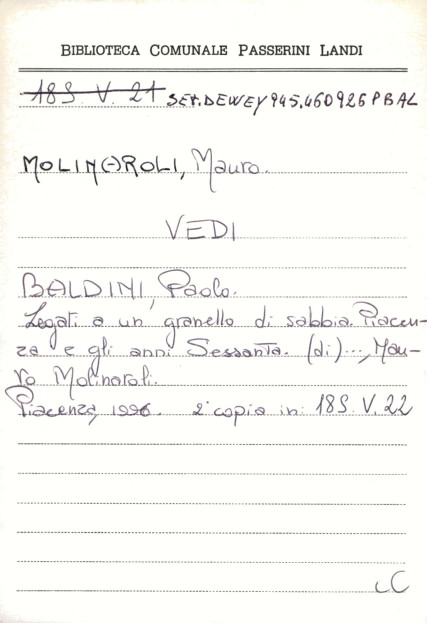 BIBLIOTECA COMUNALE PASSERINI LANDI
18S V. 21 SET.DEWEY 945.460926 PBAL
MOLINAROLI, Mauro.
VEDI
BALDINI, Paolo.
Legati a un granello di sabbia. Piacen-
za e gli anni Sessanta. (di)..., Mau-
ro Molinaroli.
Piacenza, 1996. 2ª copia in: 18S. V. 22
CC